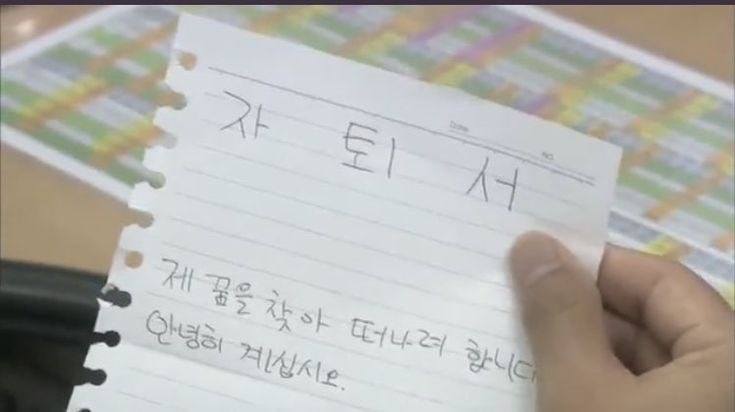 자 퇴 서
Date
No
제 꿈을 찾아 떠나려 합니다
안녕히 계십시오.